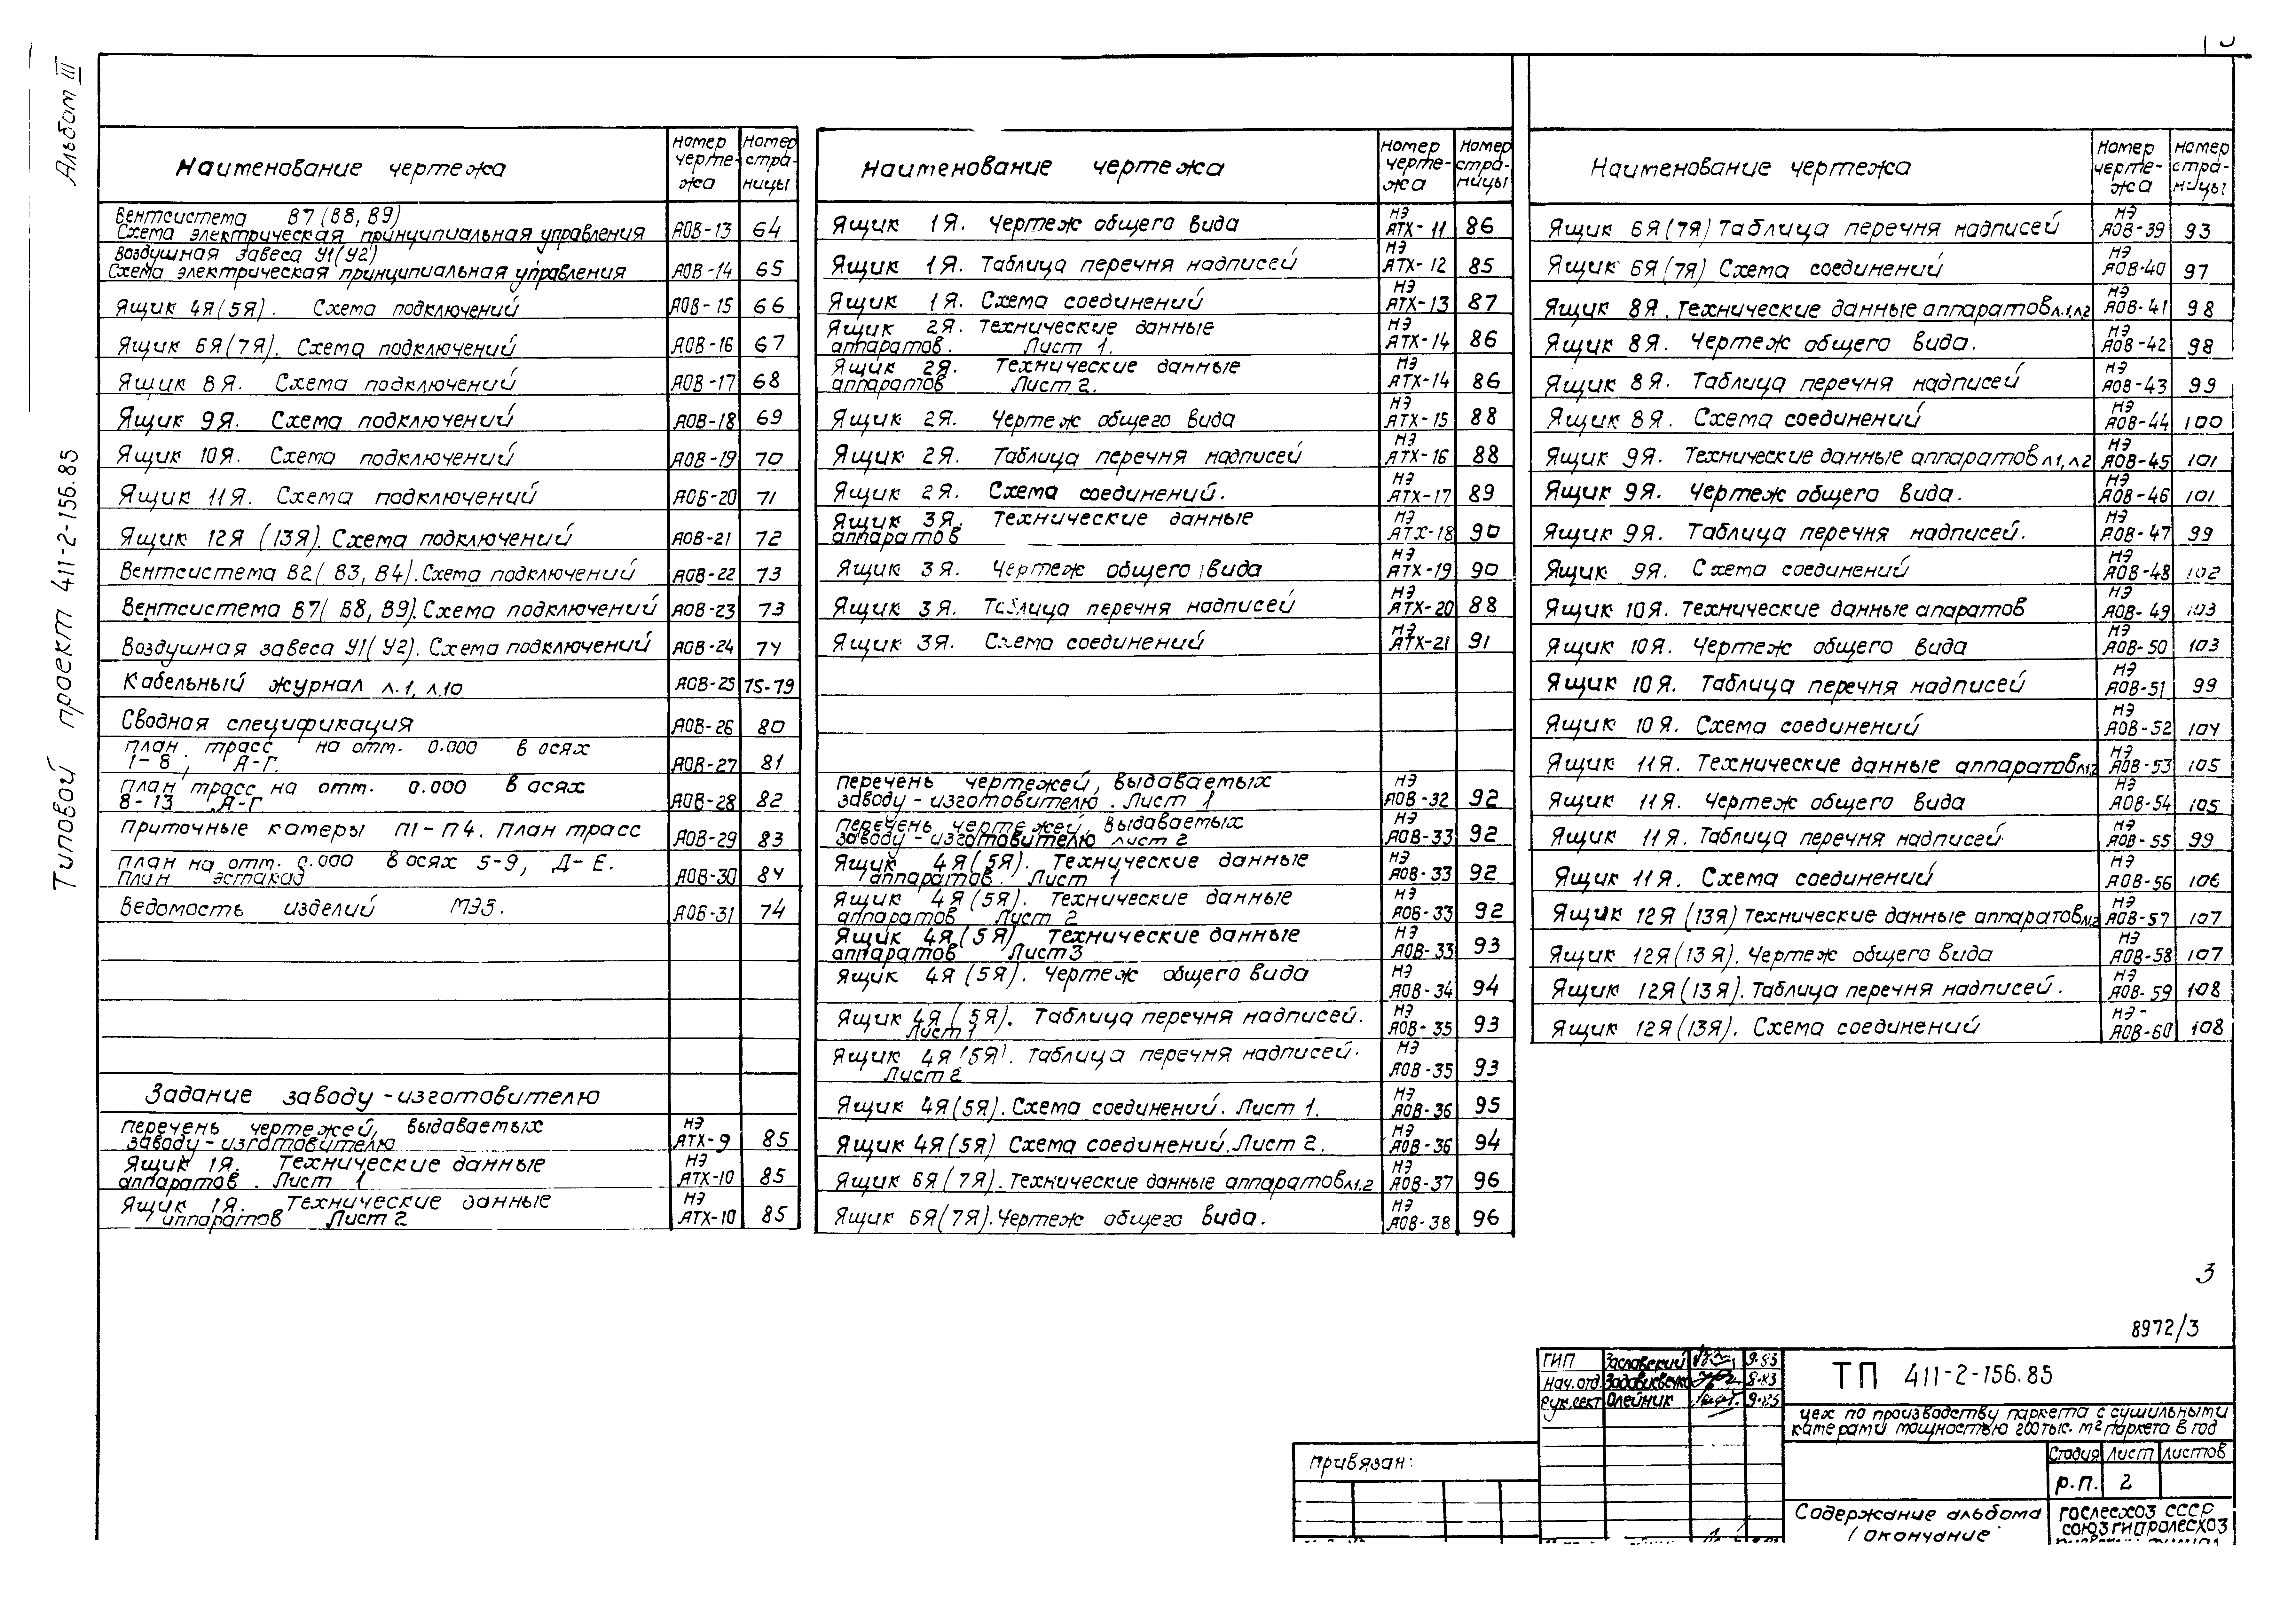 Альбом III
Типовой проект 411-2-156.85
Наименование чертежа
Номер черте- жа
Номер стра- ницы
Вентсистема В7 (В8, В9)
Схема электрическая принципиальная управления АОВ-13 64
Воздушная завеса У1(У2)
Схема электрическая принципиальная управления АОВ-14 65
Ящик 4Я(5Я). Схема подключений АОВ-15 66
Ящик 6Я(7Я). Схема подключений АОВ-16 67
Ящик 8Я. Схема подключений АОВ-17 68
Ящик 9Я. Схема подключений АОВ-18 69
Ящик 10Я. Схема подключений АОВ-19 70
Ящик 11Я. Схема подключений АОВ-20 71
Ящик 12Я (13Я). Схема подключений АОВ-21 72
Вентсистема В2( В3, В4). Схема подключений АОВ-22 73
Вентсистема В7( В8, В9). Схема подключений АОВ-23 73
Воздушная завеса У1( У2). Схема подключений АОВ-24 74
Кабельный журнал л.1, л.10 АОВ-25 75-79
Сводная спецификация АОВ-26 80
План трасс на отм. 0.000 в осях
1-8, А-Г. АОВ-27 81
План трасс на отм. 0.000 в осях
8-13 А-Г АОВ-28 82
Приточные камеры П1-П4. План трасс АОВ-29 83
План на отм. 0.000 в осях 5-9, Д-Е.
План эстакад АОВ-30 84
Ведомость изделий МЭЗ. АОВ-31 74
Задание заводу-изготовителю
перечень чертежей, выдаваемых НЭ
заводу-изготовителю АТХ-9 85
Ящик 1Я. Технические данные НЭ
аппаратов. Лист 1 АТХ-10 85
Ящик 1Я. Технические данные НЭ
аппаратов Лист 2 АТХ-10 85
Наименование чертежа
Номер черте- жа
Номер стра- ницы
НЭ
Ящик 1Я. Чертеж общего вида АТХ-11 86
НЭ
Ящик 1Я. Таблица перечня надписей АТХ-12 85
НЭ
Ящик 1Я. Схема соединений АТХ-13 87
Ящик 2Я. Технические данные НЭ
аппаратов. Лист 1. АТХ-14 86
Ящик 2Я. Технические данные НЭ
аппаратов Лист 2. АТХ-14 86
НЭ
Ящик 2Я. Чертеж общего вида АТХ-15 88
НЭ
Ящик 2Я. Таблица перечня надписей АТХ-16 88
НЭ
Ящик 2Я. Схема соединений. АТХ-17 89
Ящик 3Я. Технические данные НЭ
аппаратов АТХ-18 90
НЭ
Ящик 3Я. Чертеж общего вида АТХ-19 90
НЭ
Ящик 3Я. Таблица перечня надписей АТХ-20 88
НЭ
Ящик 3Я. Схема соединений АТХ-21 91
перечень чертежей, выдаваемых НЭ
заводу-изготовителю. Лист 1 АОВ-32 92
перечень чертежей, выдаваемых НЭ
заводу-изготовителю лист 2 АОВ-33 92
Ящик 4Я(5Я). Технические данные НЭ
аппаратов. Лист 1 АОВ-33 92
Ящик 4Я(5Я). Технические данные НЭ
аппаратов Лист 2 АОВ-33 92
Ящик 4Я(5Я) Технические данные НЭ
аппаратов Лист3 АОВ-33 93
Ящик 4Я (5Я). Чертеж общего вида НЭ
АОВ-34 94
Ящик 4Я ( 5Я). Таблица перечня надписей. НЭ
Лист 1 АОВ-35 93
Ящик 4Я(5Я). Таблица перечня надписей. НЭ
Лист 2 АОВ-35 93
НЭ
Ящик 4Я(5Я). Схема соединений. Лист 1. АОВ-36 95
НЭ
Ящик 4Я(5Я) Схема соединений. Лист 2. АОВ-36 94
НЭ
Ящик 6Я(7Я). Технические данные аппаратовл1.2 АОВ-37 96
НЭ
Ящик 6Я(7Я). Чертеж общего вида. АОВ-38 96
Наименование чертежа
Номер черте- жа
Номер стра- ницы
НЭ
Ящик 6Я(7Я) Таблица перечня надписей АОВ-39 93
НЭ
Ящик 6Я(7Я) Схема соединений АОВ-40 97
НЭ
Ящик 8Я. Технические данные аппаратовл.1,л2 АОВ-41 98
НЭ
Ящик 8Я. Чертеж общего вида. АОВ-42 98
НЭ
Ящик 8Я. Таблица перечня надписей АОВ-43 99
НЭ
Ящик 8Я. Схема соединений АОВ-44 100
НЭ
Ящик 9Я. Технические данные аппаратов л1, л2 АОВ-45 101
НЭ
Ящик 9Я. Чертеж общего вида. АОВ-46 101
НЭ
Ящик 9Я. Таблица перечня надписей. АОВ-47 99
НЭ
Ящик 9Я. Схема соединений АОВ-48 102
НЭ
Ящик 10Я. Технические данные апаратов АОВ-49 103
НЭ
Ящик 10Я. Чертеж общего вида АОВ-50 103
НЭ
Ящик 10Я. Таблица перечня надписей АОВ-51 99
НЭ
Ящик 10Я. Схема соединений АОВ-52 104
НЭ
Ящик 11Я. Технические данные аппаратов АОВ-53 105
НЭ
Ящик 11Я. Чертеж общего вида АОВ-54 105
НЭ
Ящик 11Я. Таблица перечня надписей АОВ-55 99
НЭ
Ящик 11Я. Схема соединений АОВ-56 106
НЭ
Ящик 12Я (13Я) Технические данные аппаратов АОВ-57 107
НЭ
Ящик 12Я(13Я). Чертеж общего вида АОВ-58 107
НЭ
Ящик 12Я(13Я). Таблица перечня надписей. АОВ-59 108
НЭ-
Ящик 12Я(13Я). Схема соединений АОВ-60 108
3
8972/3
ГИП Заславский 9.85
Нач. отд.
Рук. сект Олейник 9.85
ТП 411-2-156.85
цех по производству паркета с сушильными
камерами мощностью 200тыс. м² паркета в год
Стадия Лист Листов
р.п. 2
Привязан:
Содержание альбома
(окончание
гослесхоз СССР
союзгипролесхоз